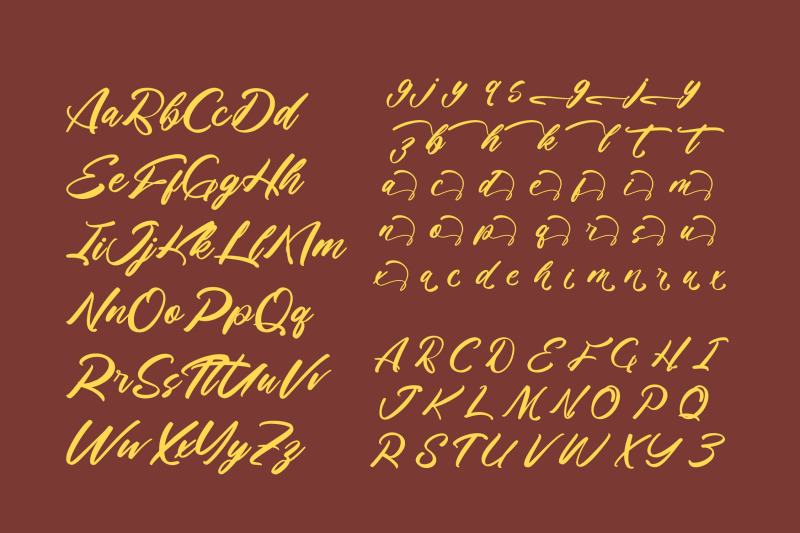 AaBbCcDd
EeFfGgHh
IiJjKkLlMm
NnOoPpQq
RrSsTtUuVv
WwXxYyZz
g j y q s g j y
z b h k l t t
a c d e f i m
n o p q r s u
x a c d e h i m n r u x
A B C D E F G H I
J K L M N O P Q
R S T U V W X Y Z